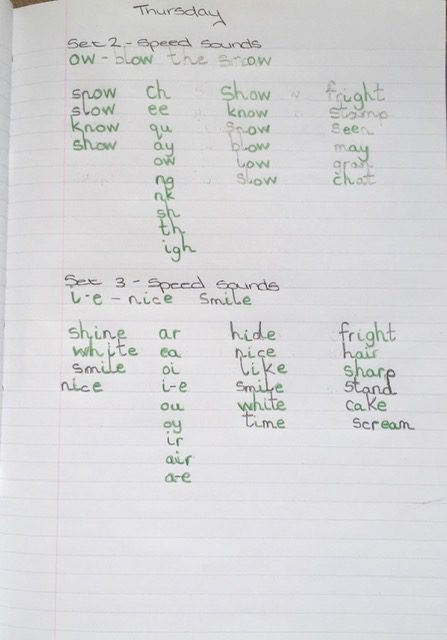 Thursday
Set 2 - Speed Sounds
ow - blow the snow
snow ch Show fright
slow ee know stamp
know qu snow seen
show ay blow may
ow low gran
ng slow chat
nk
sh
th
igh
Set 3 - Speed Sounds
i-e - nice smile
shine ar hide fright
white ea nice hair
smile oi like sharp
nice i-e smile stand
ou white cake
oy time scream
ir
air
a-e